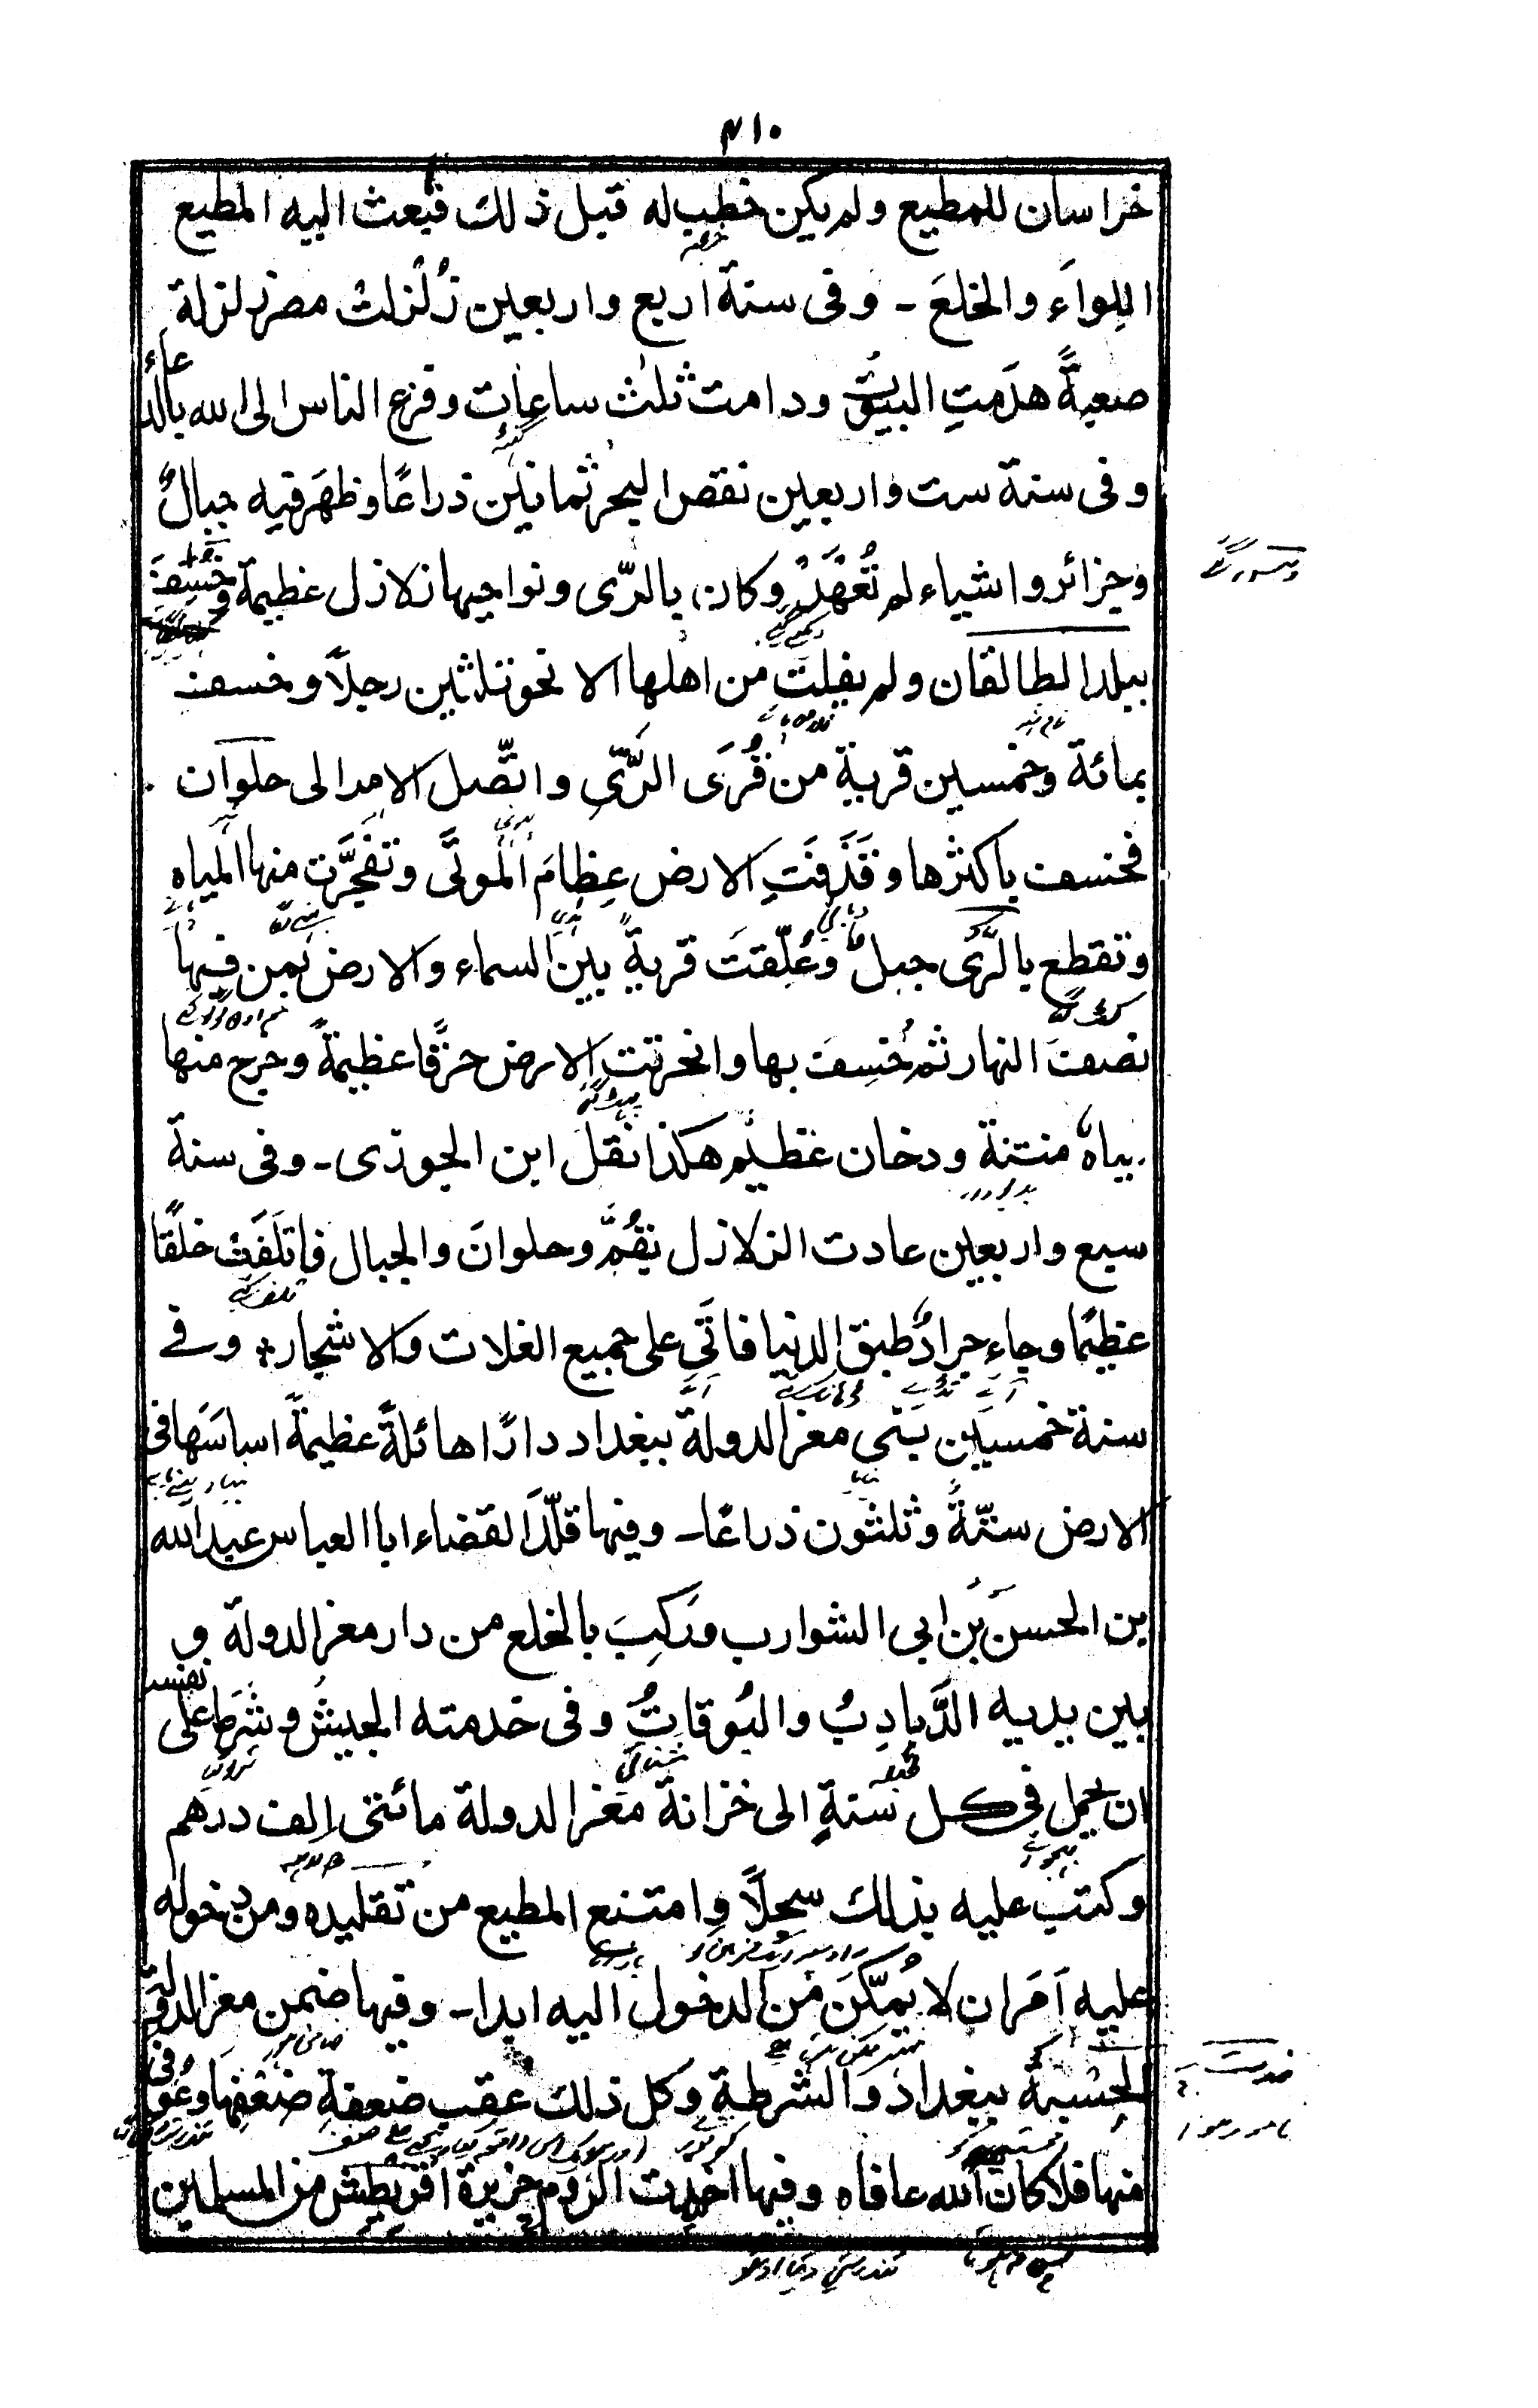 ۴۱۰
خراسان للمطيع ولم يكن خطب له قبل ذلك فبعث اليه المطيع
اللواءَ والخلعَ ـ وفى سنة اربع واربعين زُلزلتْ مصر زلزلة
صعبةً هدَمتِ البيوتَ ودامت ثلث ساعات وفزع الناس الى الله بالدعاء
وفى سنة ست واربعين نقص البحر ثمانين ذراعًا وظهَر فيه جبالٌ
وجزائر واشياء لم تُعْهَدْ وكان بالرّى ونواحيها زلازل عظيمة وخُسِفَ
ببلد الطالقان ولم يفلت من اهلها الا نحو ثلاثين رجلاً وخسف
بمائة وخمسين قرية من قُرَى الرّى واتّصل الامر الى حلوان
فخسف باكثرها وقَذَفَتِ الارض عِظامَ الموتَى وتفجَّرت منها المياه
وتقطع بالرَّى جبلٌ وعُلّقتَ قريةٌ بين السماء والارض بمن فيها
نصفَ النهار ثم خُسِفَ بها وانخرقت الارض خرقًا عظيمةً وخرج منها
مياهٌ منتنة ودخان عظيم هكذا نقل ابن الجوزى ـ وفى سنة
سبع واربعين عادت الزلازل بقُمّ وحلوانَ والجبال فاتلَفَتْ خلقًا
عظيمًا وجاء جرادٌ طبق الدنيا فاتَى على جميع الغلات والاشجار؞ وفے
سنة خمسين بنَى معز الدولة ببغداد دارًا هائلةً عظيمةً اساسَها فى
الارض ستّةٌ وثلثون ذراعًا ـ وفيها قلّدَ القضاء ابا العباس عبد الله
بن الحسن بن ابى الشوارب وركِبَ بالخلع من دار معز الدولة و
بين يديه الدَّبادِبُ والبُوقاتُ وفى خدمته الجيشُ وشَرَط على نفسه
ان يحمل فى كل سنةٍ الى خزانة معز الدولة مائتى الف درهم
وكتب عليه بذلك سجلاً وامتنع المطيع من تقليده ومن دخوله
عليه اَمَر ان لا يُمكَّنَ من الدخول اليه ابدا ـ وفيها ضمن معز الدولة
الحِسْبةَ ببغداد والشرطة وكل ذلك عقب ضعفةِ ضعُفها وعُوفى
منها فلا كان الله عافاه وفيها اخذت الروم جزيرة اقريطش من المسلمين